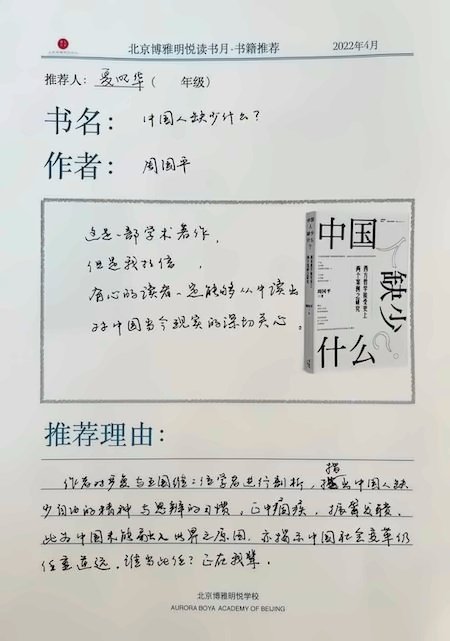 北京博雅明悦读书月-书籍推荐 2022年4月
推荐人：夏明华（ 年级）
书名： 中国人缺少什么？
作者： 周国平
这是一部学术著作，
但是我相信，
有心的读者一定能够从中读出
对中国当今现实的深切关心。
中国人缺少什么？
西方哲学接受史上
两个案例之研究
周国平
推荐理由：
作者对严复与王国维二位学者进行剖析，指出中国人缺
少自由的精神与思辨的习惯，正中痼疾，振聋发聩，
此为中国未能融入世界之原因，亦揭示中国社会变革仍
任重道远。谁当此任？正在我辈。
北京博雅明悦学校
AURORA BOYA ACADEMY OF BEIJING